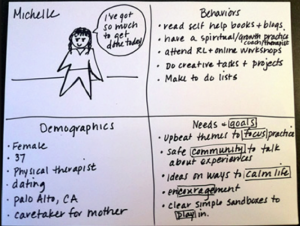 Michelle
I've got
so much
to get
done today!
Behaviors
• read self help books + blogs
• have a spiritual/growth practice
coach/therapist
• attend RL + online workshops
• Do creative tasks + projects
• Make to do lists
Demographics
• Female
• 37
• Physical therapist
• dating
• palo Alto, CA
• caretaker for mother
Needs + goals
• Upbeat themes to focus practice
• safe community to talk
about experiences
• ideas on ways to calm life
• encouragement
• clear simple sandboxes to
play in.